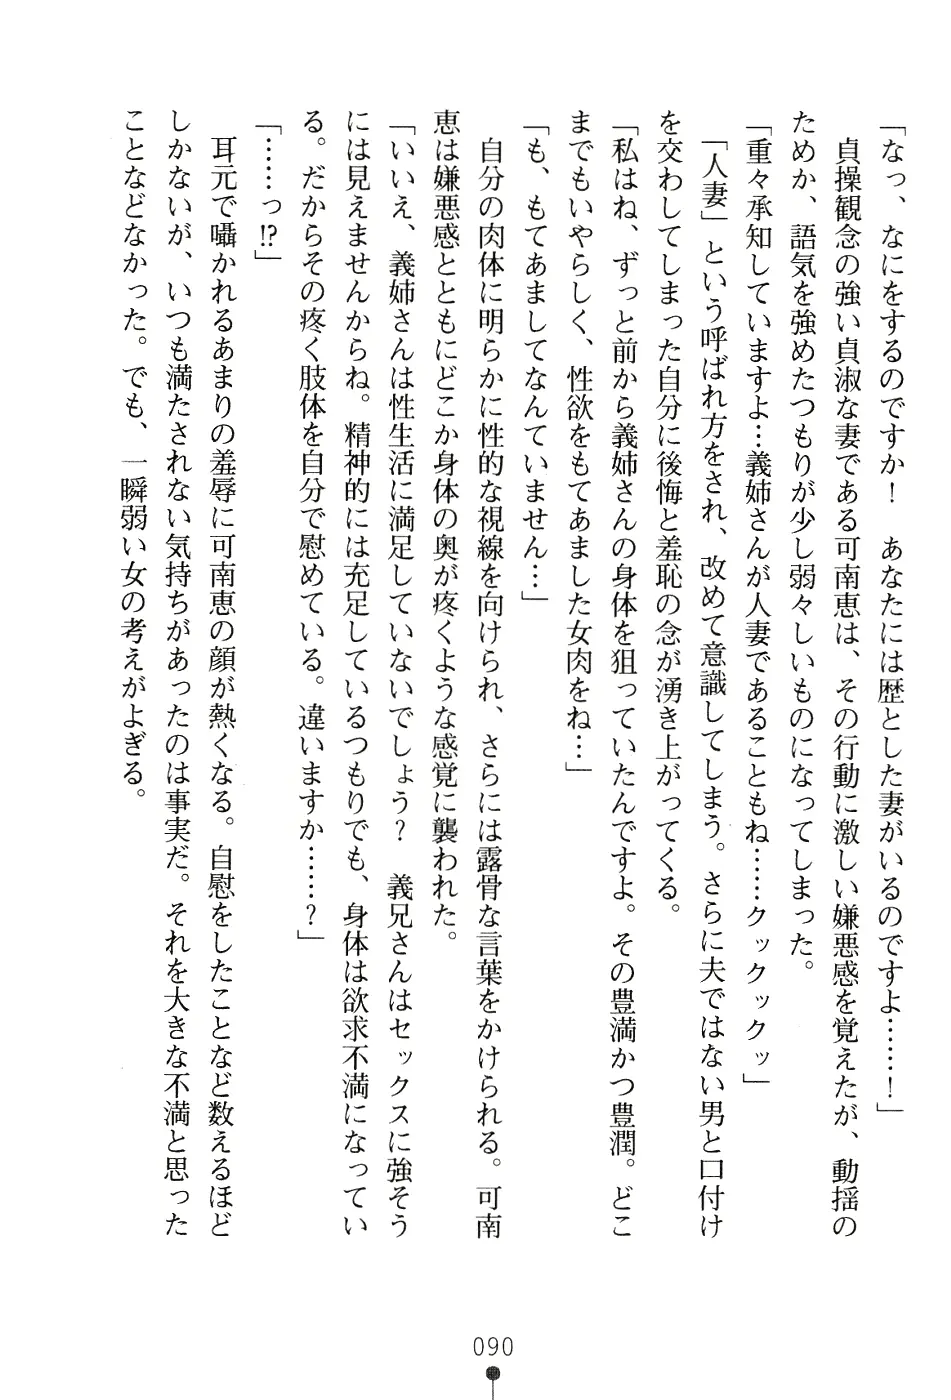 「なっ、なにをするのですか！　あなたには歴とした妻がいるのですよ……！」
　貞操観念の強い貞淑な妻である可南恵は、その行動に激しい嫌悪感を覚えたが、動揺の
ためか、語気を強めたつもりが少し弱々しいものになってしまった。
「重々承知していますよ…義姉さんが人妻であることもね……クックックッ」
「人妻」という呼ばれ方をされ、改めて意識してしまう。さらに夫ではない男と口付け
を交わしてしまった自分に後悔と羞恥の念が湧き上がってくる。
「私はね、ずっと前から義姉さんの身体を狙っていたんですよ。その豊満かつ豊潤。どこ
までもいやらしく、性欲をもてあました女肉をね…」
「も、もてあましてなんていません…」
　自分の肉体に明らかに性的な視線を向けられ、さらには露骨な言葉をかけられる。可南
恵は嫌悪感とともにどこか身体の奥が疼くような感覚に襲われた。
「いいえ、義姉さんは性生活に満足していないでしょう？　義兄さんはセックスに強そう
には見えませんからね。精神的には充足しているつもりでも、身体は欲求不満になってい
る。だからその疼く肢体を自分で慰めている。違いますか……？」
「……っ!?」
　耳元で囁かれるあまりの羞辱に可南恵の顔が熱くなる。自慰をしたことなど数えるほど
しかないが、いつも満たされない気持ちがあったのは事実だ。それを大きな不満と思った
ことなどなかった。でも、一瞬弱い女の考えがよぎる。
090